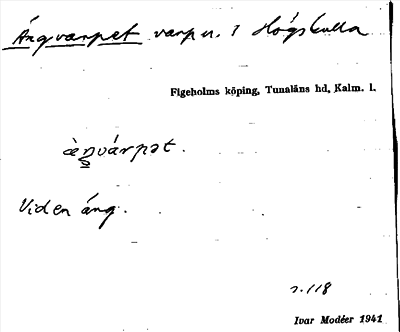 Ängvarpet varp n. i Högskulla
Figeholms köping, Tunaläns hd, Kalm. l.
àŋvárpət.
Vid en äng.
s. 118
Ivar Modéer 1941